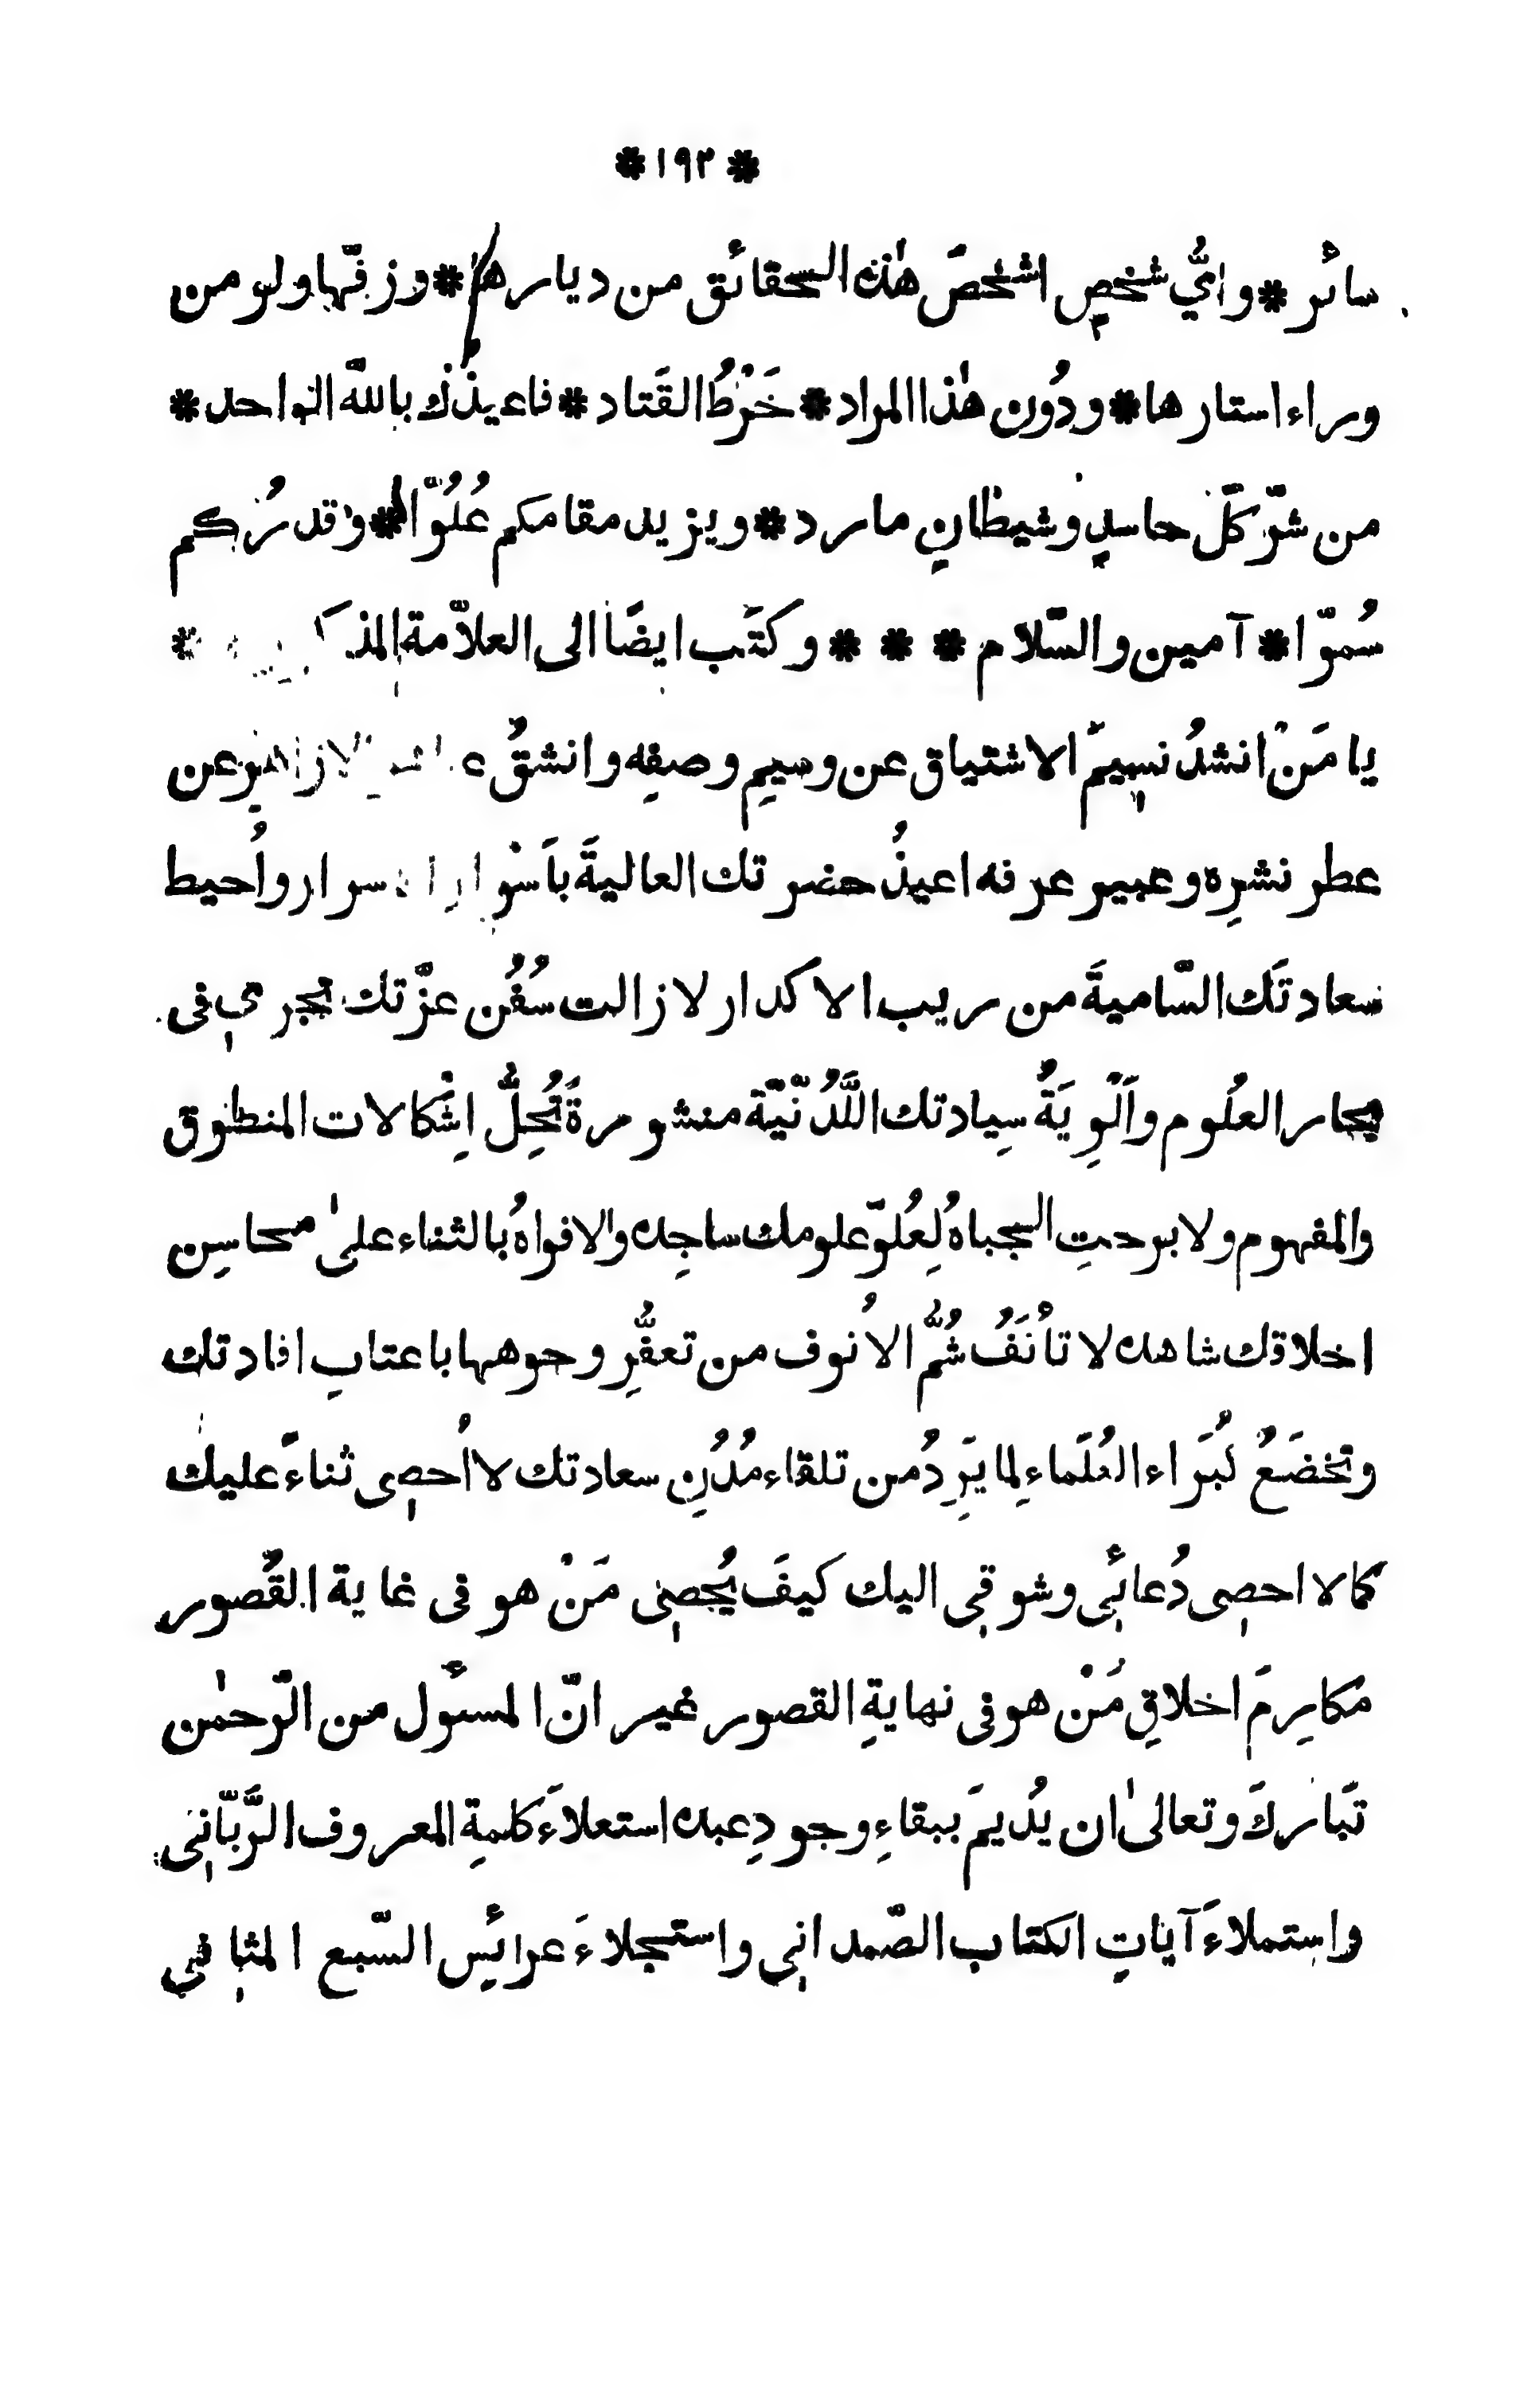 * ١٩٣ *
سائر * وايُّ شخصٍ اشخصَ هٰذه الحقائق من ديارها * وزفّها ولو من
وراء استارها * ودُون هٰذا المراد * خَرْطُ القَتاد * فاعيذك بالله الواحد *
من شرّ كلّ حاسدٍ وشيطانٍ مارد * ويزيد مقامكم عُلُوّا * وقدرُكم
سُموّا * آمين والسّلام * * * وكتَب ايضًا الى العلاّمة *
يا مَنْ انشدُ نسيمَ الاشتياق عن وسيمِ وصفِه وانشقُ الازاهرِ عن
عطر نشرِه وعبير عرفه اعيذُ حضرتك العاليةَ باَسْوارِ الاسرار واُحيط
سعادتَك السّاميةَ من ريب الاكدار لا زالت سُفُن عزّتك تجري فى
بحار العلُوم واَلْوِيَةُ سِيادتك اللَّدُنّيّة منشورةً تُحِلُّ اِشْكالات المنطوق
والمفهوم ولا برحتِ الجباهُ لِعُلوّ علومك ساجِده والافواهُ بالثناء علىٰ محاسِن
اخلاقك شاهده لا تأنَفُ شُمُّ الاُنوف من تعفُّرِ وجوهها باعتابِ افادتك
وتخضَعُ كُبَراء العُلَماءِ لما يَرِدُ من تلقاء مُدُنِ سعادتك لا اُحصِى ثناءً عليك
كما لا احصِى دُعائِي وشوقِى اليك كيفَ يُحصِى مَنْ هو فى غاية القُصور
مكارِمَ اخلاقِ مَنْ هو فى نهايةِ القصور غير انّ المسئول من الرّحمٰن
تَباركَ وتعالىٰ ان يُديمَ ببقاءِ وجودِ عبده استعلاءَ كلمةِ المعروف الرَّبّانِى
واستملاءَ آياتِ الكتاب الصّمدانِى واستجلاءَ عرائِس السّبع المثانِى